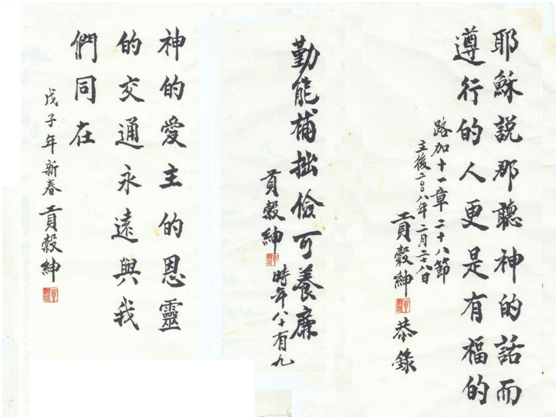 耶穌説那聽神的話而
遵行的人更是有福的
路加十一章二十八節
主後二〇〇八年二月二十八日
貢穀紳
恭錄
勤能補拙儉可養廉
貢穀紳
時年八十有九
神的愛主的恩靈
的交通永遠與我
們同在
戊子年新春
貢穀紳